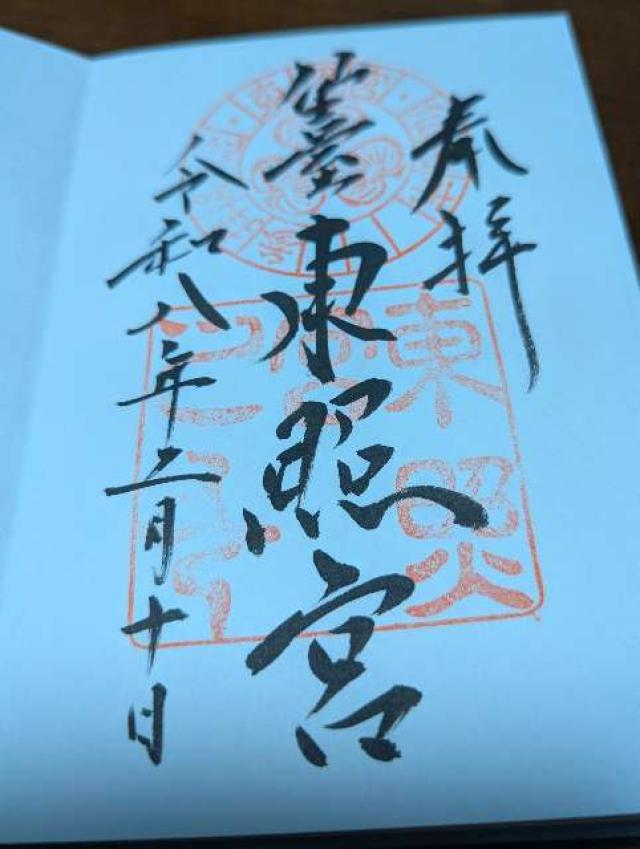 奉拝
仙臺東照宮
令和八年二月十日
東照宮